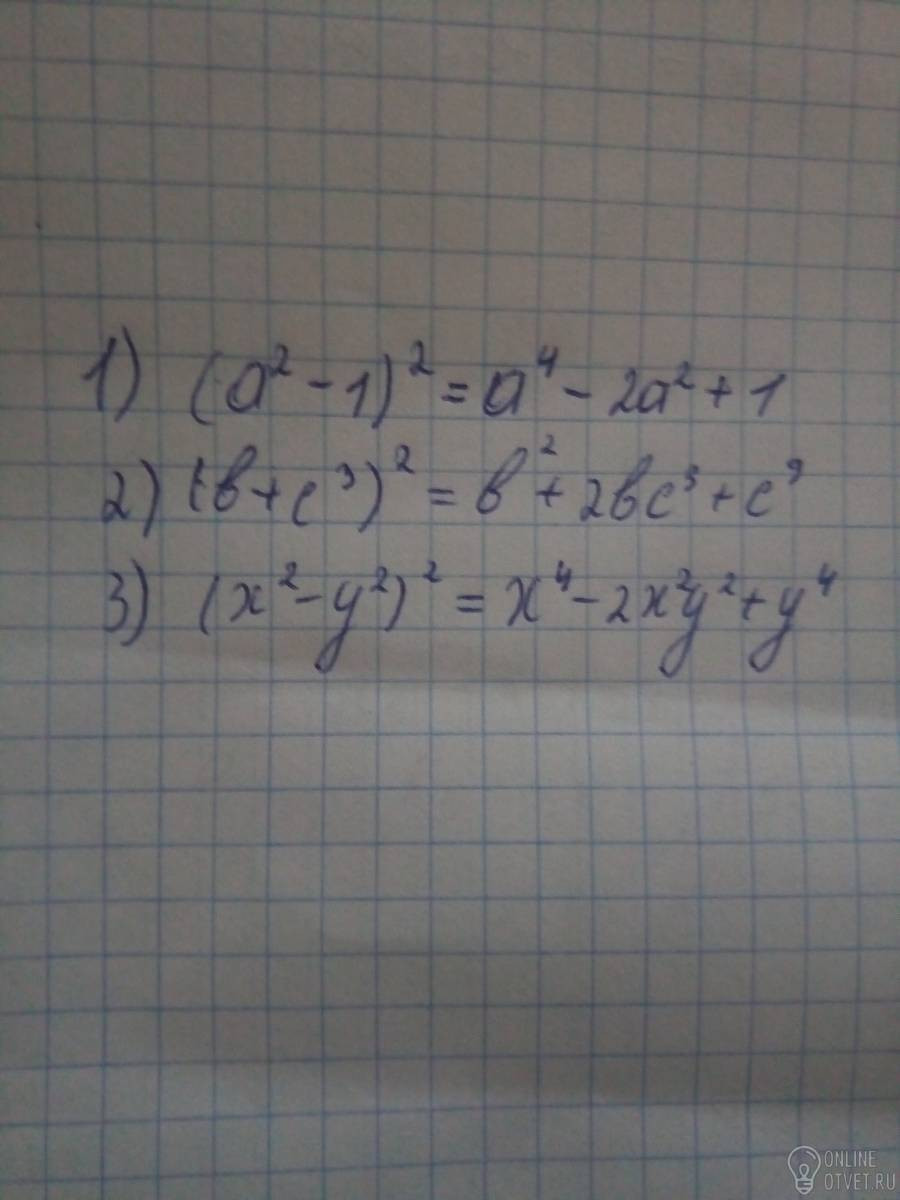 1) (a² - 1)² = a⁴ - 2a² + 1
2) (в + c³)² = в² + 2вc³ + c⁹
3) (x² - y²)² = x⁴ - 2x²y² + y⁴
ONLINE
OTVET.RU